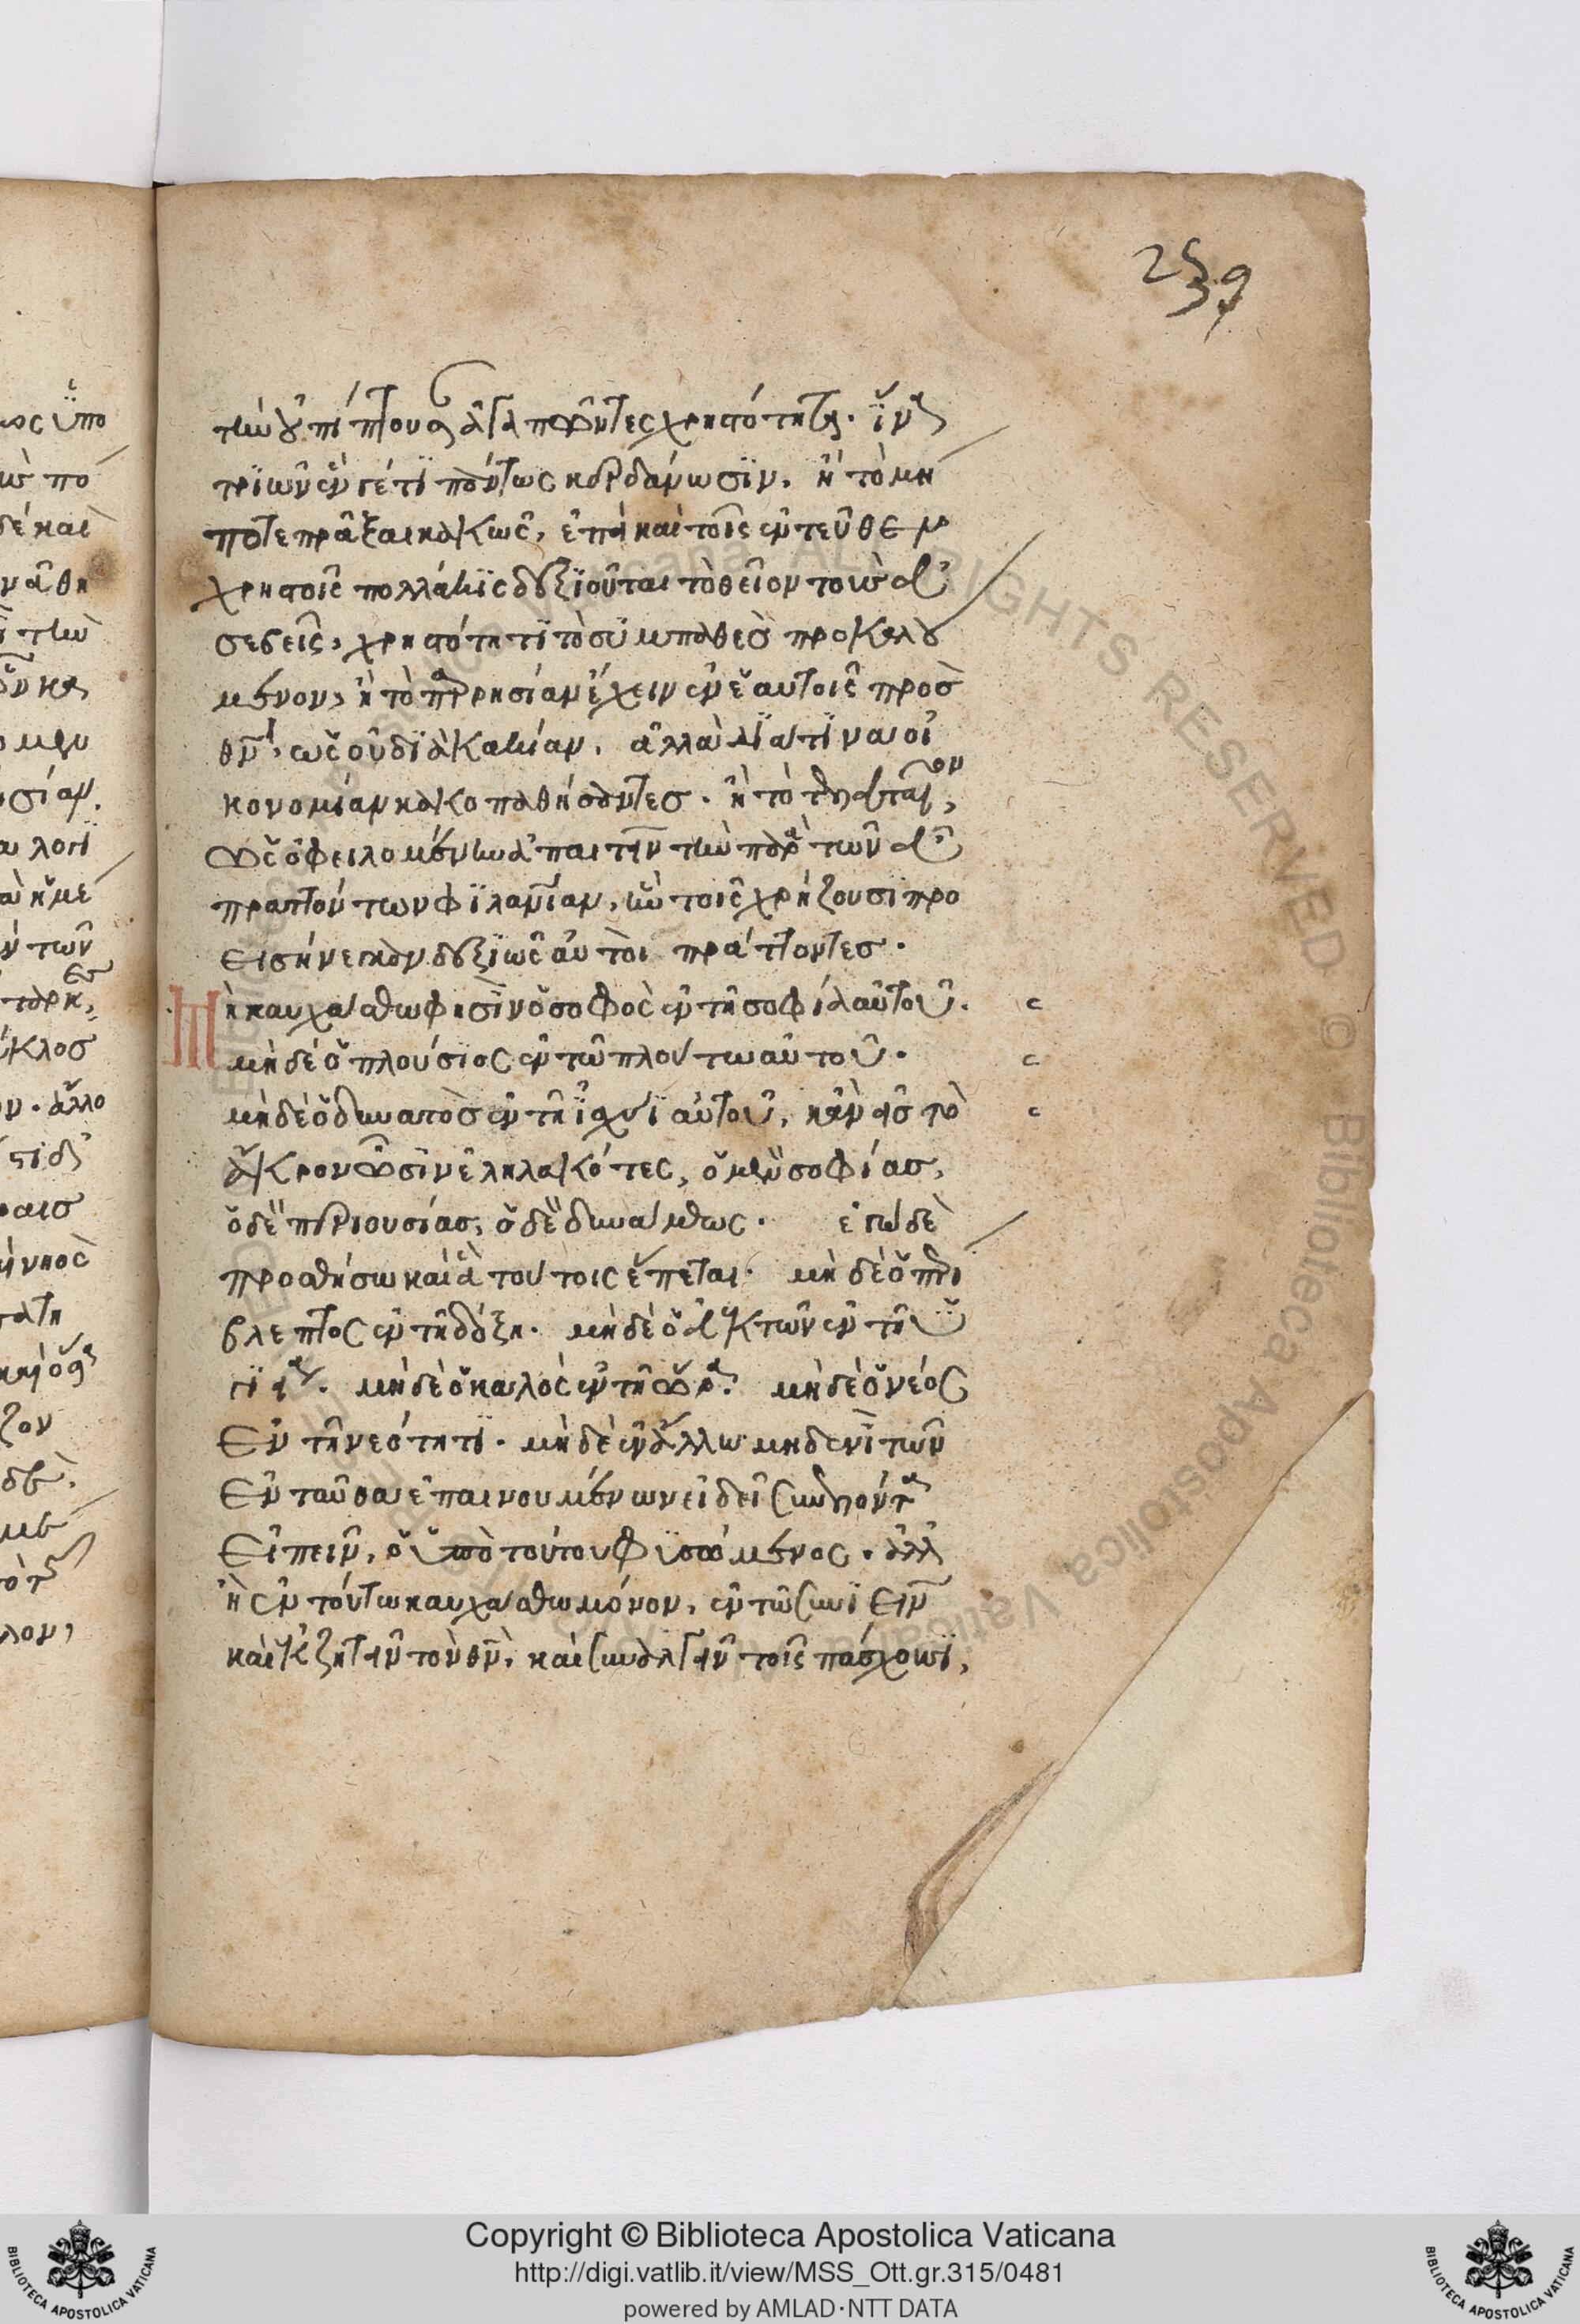 τὴν οὐ πίπτουσαν ἀγαπῶντες χρηστότητα· ἵνα
τριῶν ἕν γέ τι πάντως κερδάνωσιν, ἢ τὸ μή
ποτε πρᾶξαι κακῶς, ἐπεὶ καὶ τοῖς ἐντεῦθεν
χρηστοῖς πολλάκις δεξιοῦται τὸ θεῖον τοὺς εὐ
σεβεῖς, χρηστότητι τὸ συμπαθὲς προκαλού
μενον, ἢ τὸ παρρησίαν ἔχειν ἐν ἑαυτοῖς πρὸς
θν, ὡς οὐ διὰ κακίαν, ἀλλὰ διά τινα οἰ
κονομίαν κακοπαθήσαντες· ἢ τὸ τελευταῖον,
ὡς ὀφειλομένην ἀπαιτεῖν τὴν παρὰ τῶν εὖ
πραττόντων φιλανίαν, ἣν τοῖς χρήζουσι προ
εισήνεγκαν δεξιῶς αὐτοὶ πράττοντες·
Μὴ καυχάσθω φησὶν ὁ σοφὸς ἐν τῇ σοφίᾳ αὐτοῦ·
μηδὲ ὁ πλούσιος ἐν τῷ πλούτω αὐτοῦ·
μηδὲ ὁ δυνατὸς ἐν τῇ ἰσχύϊ αὐτοῦ, κἂν εἰς τὸ
ἄκρον ὦσιν ἐληλακότες, ὁ μὲν σοφίας,
ὁ δὲ περιουσίας, ὁ δὲ δυνάμεως· ἐγὼ δὲ
προσθήσω καὶ ἃ τούτοις ἕπεται· μηδὲ ὁ περί
βλεπτος ἐν τῇ δόξη· μηδὲ ὁ εὐεκτῶν ἐν τῇ ὑ
γιεία· μηδὲ ὁ καλὸς ἐν τῇ ὥρα· μηδὲ ὁ νέος
ἐν τῇ νεότητι· μηδὲ ἐν ἄλλω μηδενὶ τῶν
ἐνταῦθα ἐπαινουμένων εἰ δεῖ συνελόντα
εἰπεῖν, ὁ ὑπὸ τούτου φυσώμενος· ἀλλ
ἢ ἐν τούτω καυχάσθω μόνον, ἐν τῷ συνιεῖν
καὶ ἐκζητεῖν τὸν θν, καὶ συναλγεῖν τοῖς πάσχουσι,
Copyright © Biblioteca Apostolica Vaticana
http://digi.vatlib.it/view/MSS_Ott.gr.315/0481
powered by AMLAD·NTT DATA